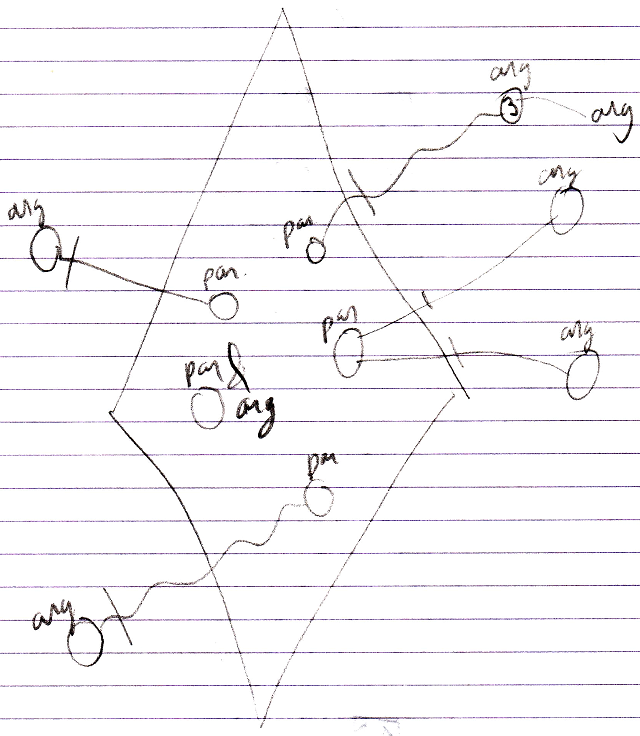 arg
3
arg
arg
arg
par
par.
par
arg
par &
arg
par
arg